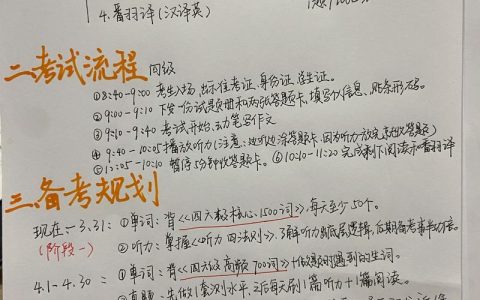 4.番羽译(汉译英)
二.考试流程 四级
①8:40-9:00 考生入场,出示准考证、身份证、学生证。
②9:00-9:10 下发一份试题册和两张答题卡,填写个人信息、贴条形码。
③9:10-9:40 考试开始、动笔写作文
④9:40-10:05 播放听力(注意:边听边涂答题卡,因为听力放完就收答题)
⑤10:05-10:10 暂停5分钟收答题卡。⑥10:10-11:20 完成剩下阅读和番羽译
三.备考规划
现在-3.31: ①单词:背《四六级核心1500词》,每天至少50个。
(阶段一) ②听力:掌握《听力四法则》,了解听力底层逻辑,后期备考事半功倍。
4.1-4.30: ①单词:背《四六级高频700词》+做题时遇到的生词。
②真题:先做1套测水平,之后每天刷1篇听力+1篇阅读。